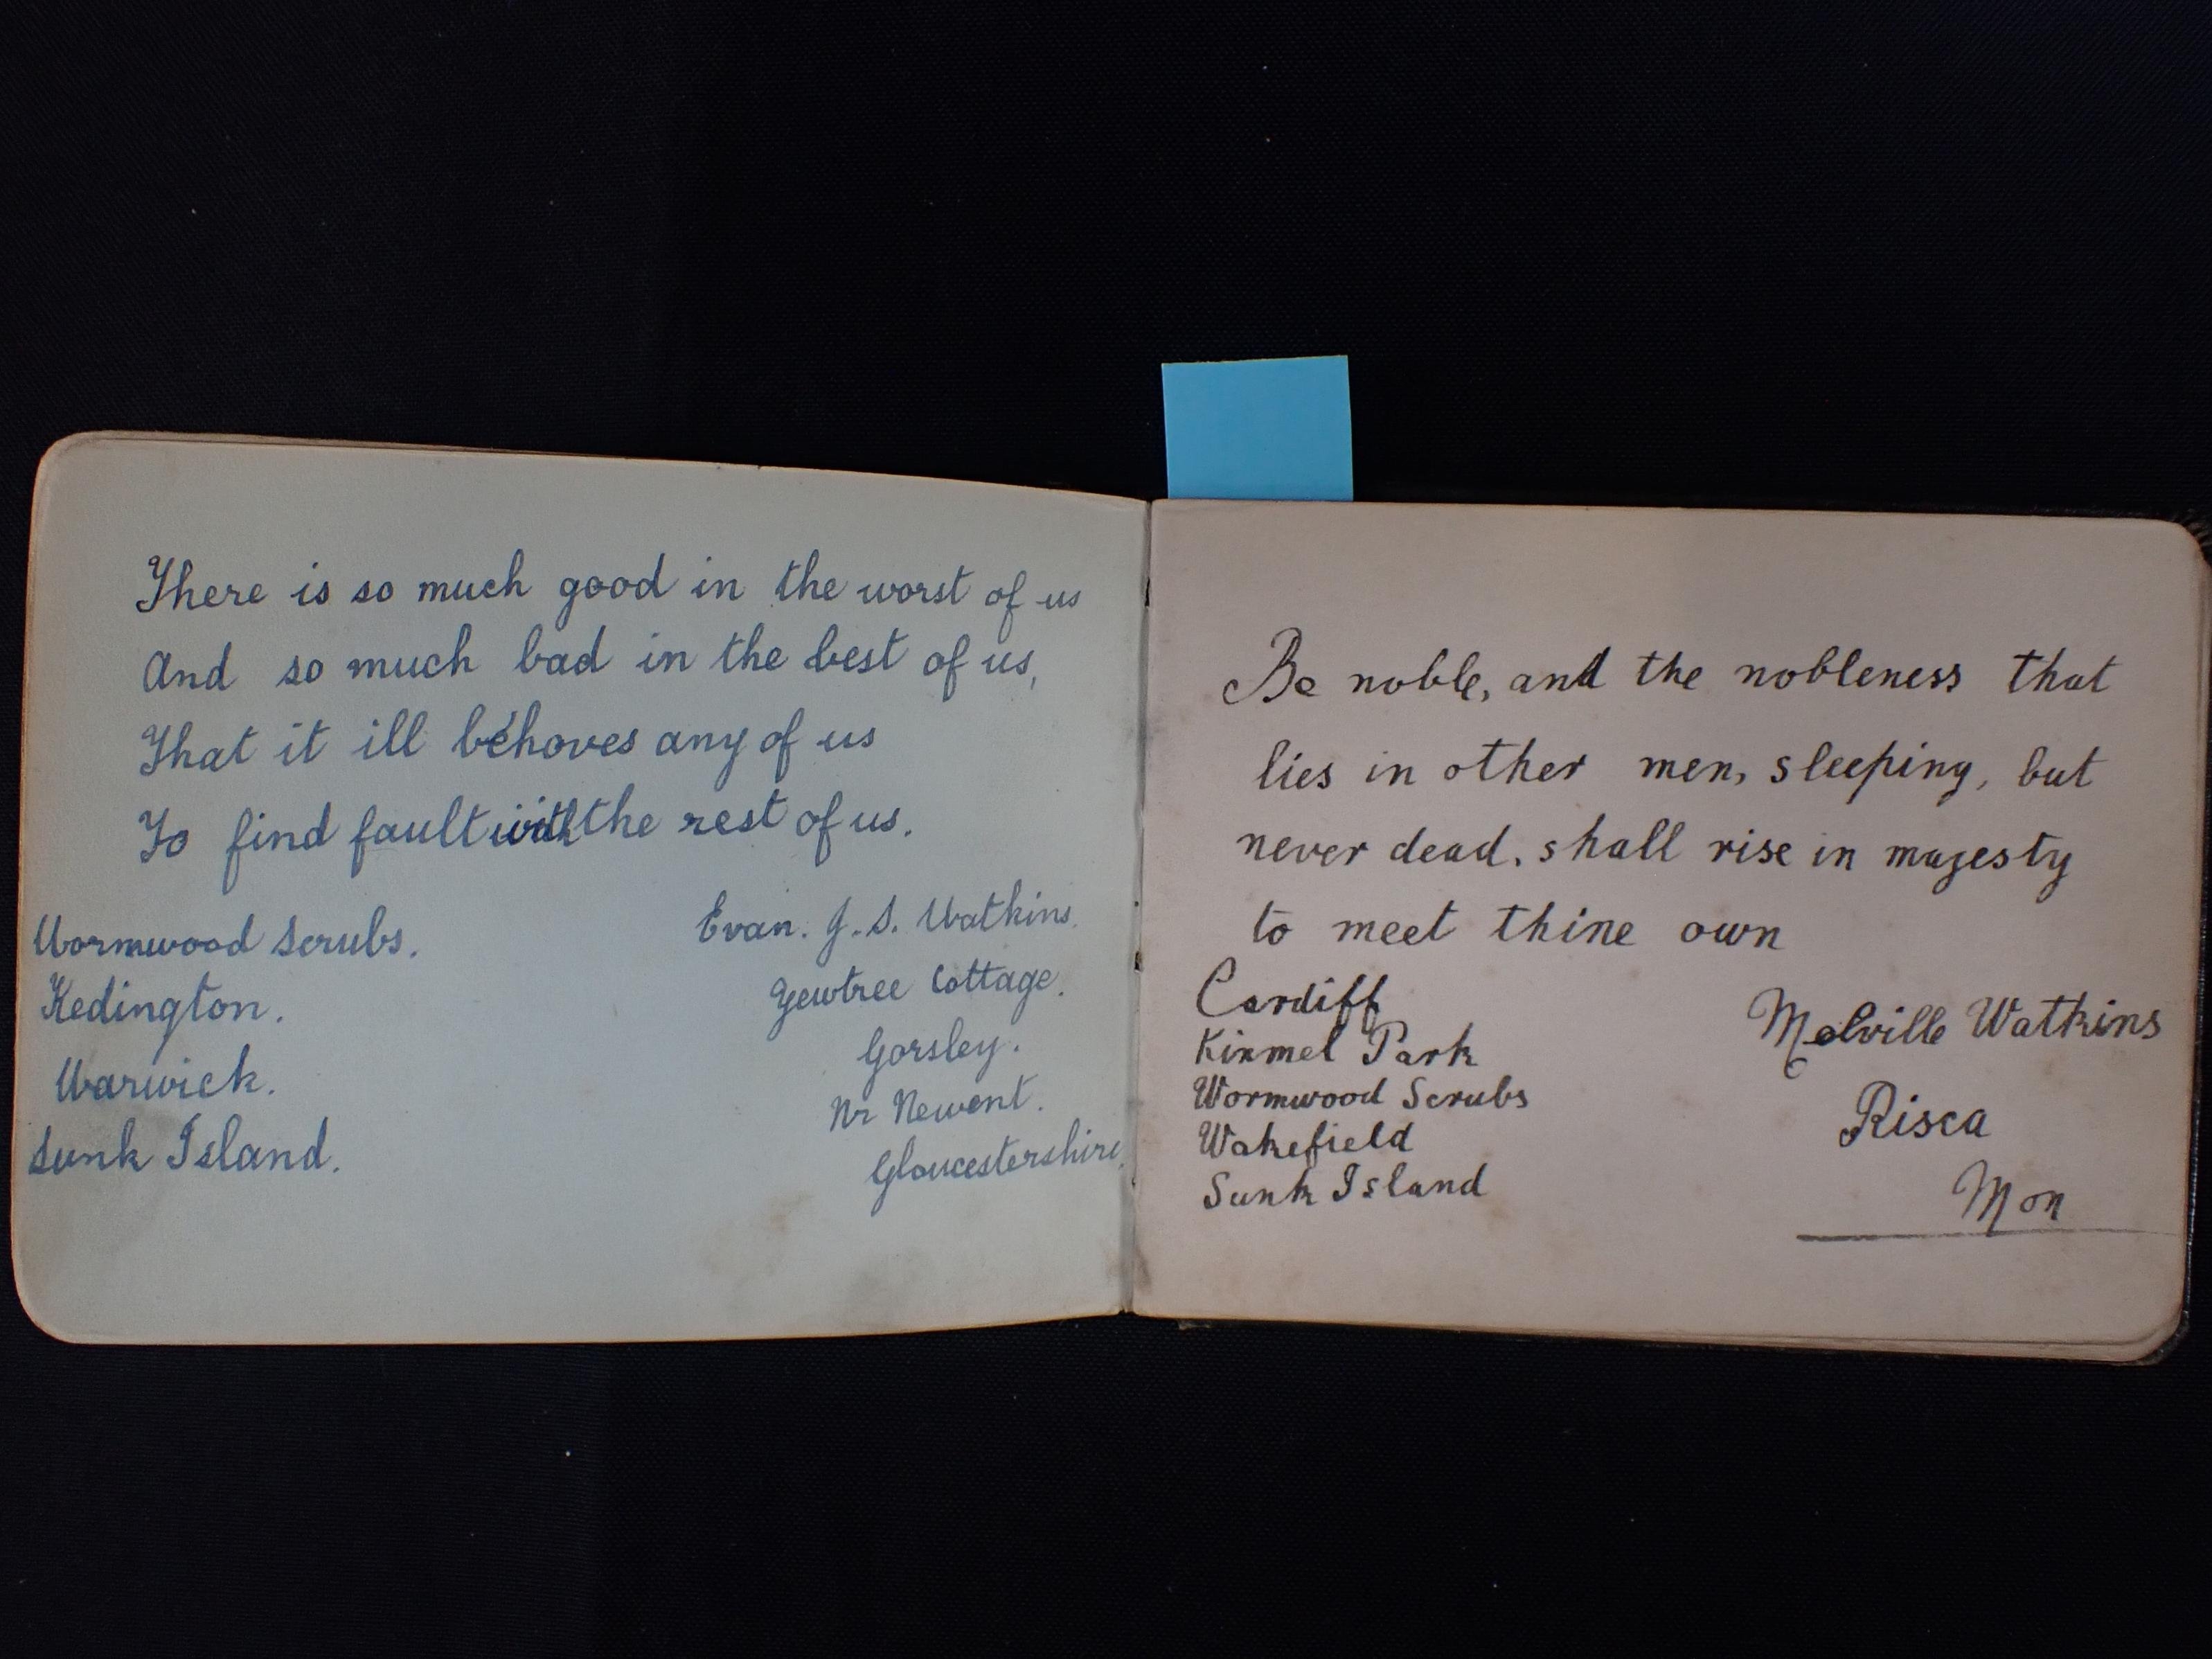 There is so much good in the worst of us
And so much bad in the best of us,
That it ill behoves any of us
To find fault with the rest of us.
Evan. J. S. Watkins.
Yewtree Cottage.
Gorsley.
Nr Newent.
Gloucestershire.
Wormwood Scrubs.
Kedington.
Warwick.
Sunk Island.
Be noble, and the nobleness that
lies in other men, sleeping, but
never dead, shall rise in majesty
to meet thine own
Melville Watkins
Risca
Mon
Cardiff
Kinmel Park
Wormwood Scrubs
Wakefield
Sunk Island